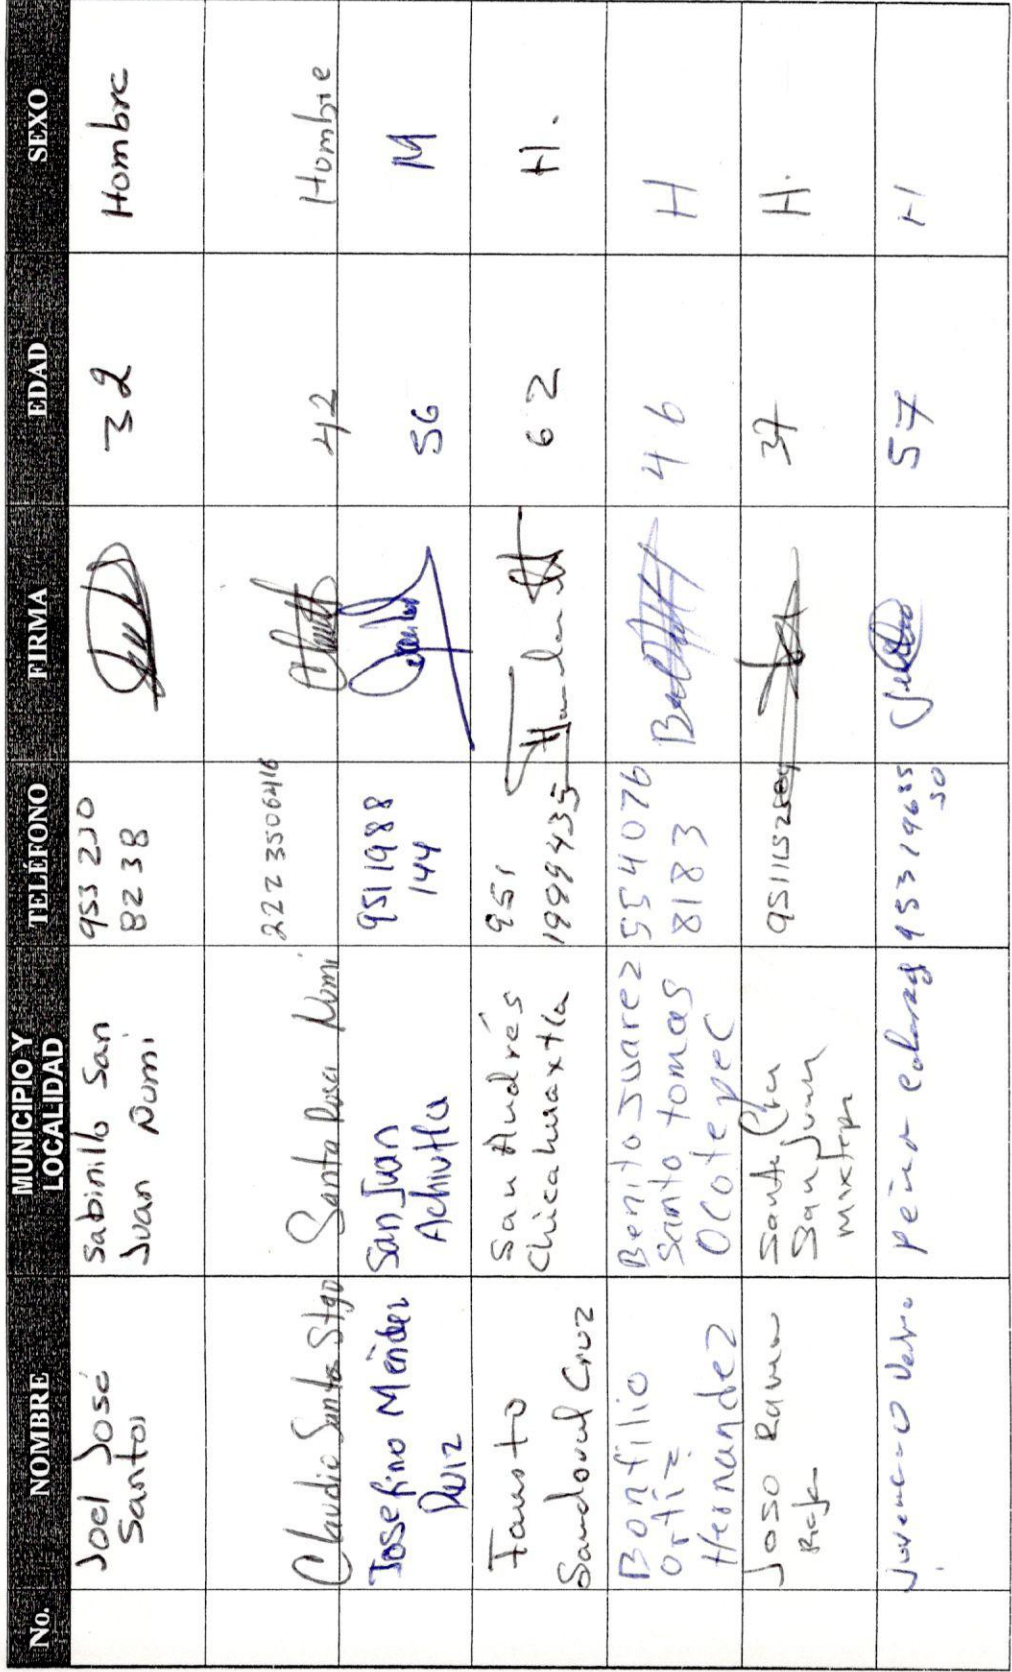 No. NOMBRE MUNICIPIO Y LOCALIDAD TELÉFONO FIRMA EDAD SEXO
Joel José Santos
Sabinillo San Juan Ñumi
953 230 8238
32
Hombre
Claudio Santos Stgo
Santa Rosa Ñumi
222 3506416
42
Hombre
Josefino Méndez Ruiz
San Juan Achiutla
951 1988 144
56
M
Fausto Sandoval Cruz
San Andrés Chicahuaxtla
951 1999435
62
H.
Bonfilio Ortíz Hernandez
Benito Juarez Santo tomas Ocotepec
554076 8183
46
H
San Juan Mixtepec
37
H.
57
H